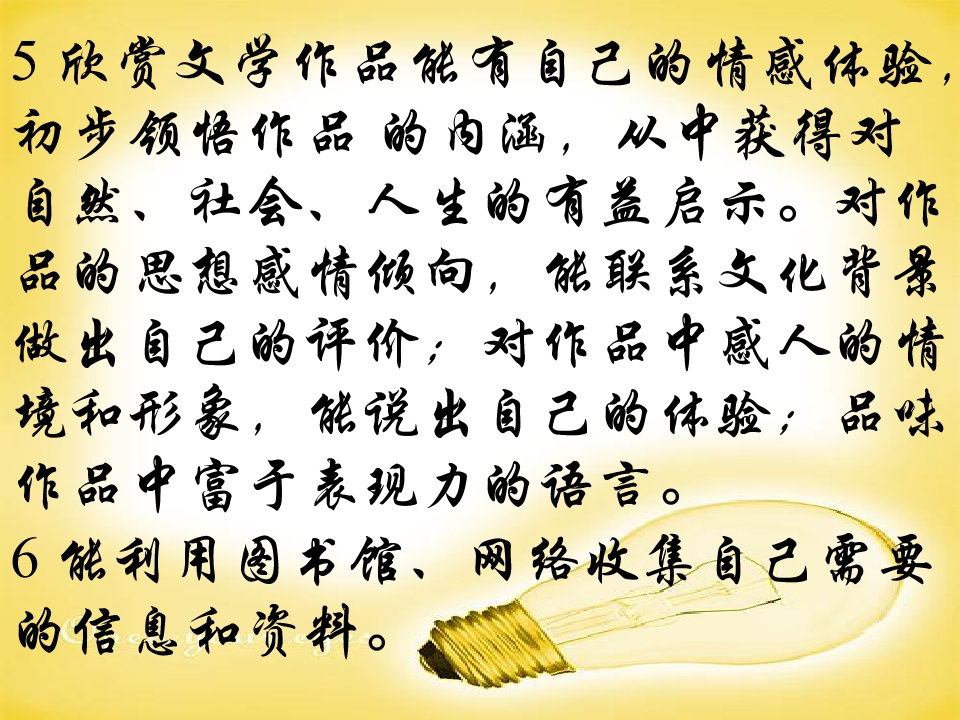 5 欣赏文学作品能有自己的情感体验，
初步领悟作品 的内涵，从中获得对
自然、社会、人生的有益启示。对作
品的思想感情倾向，能联系文化背景
做出自己的评价；对作品中感人的情
境和形象，能说出自己的体验；品味
作品中富于表现力的语言。
6 能利用图书馆、网络收集自己需要
的信息和资料。